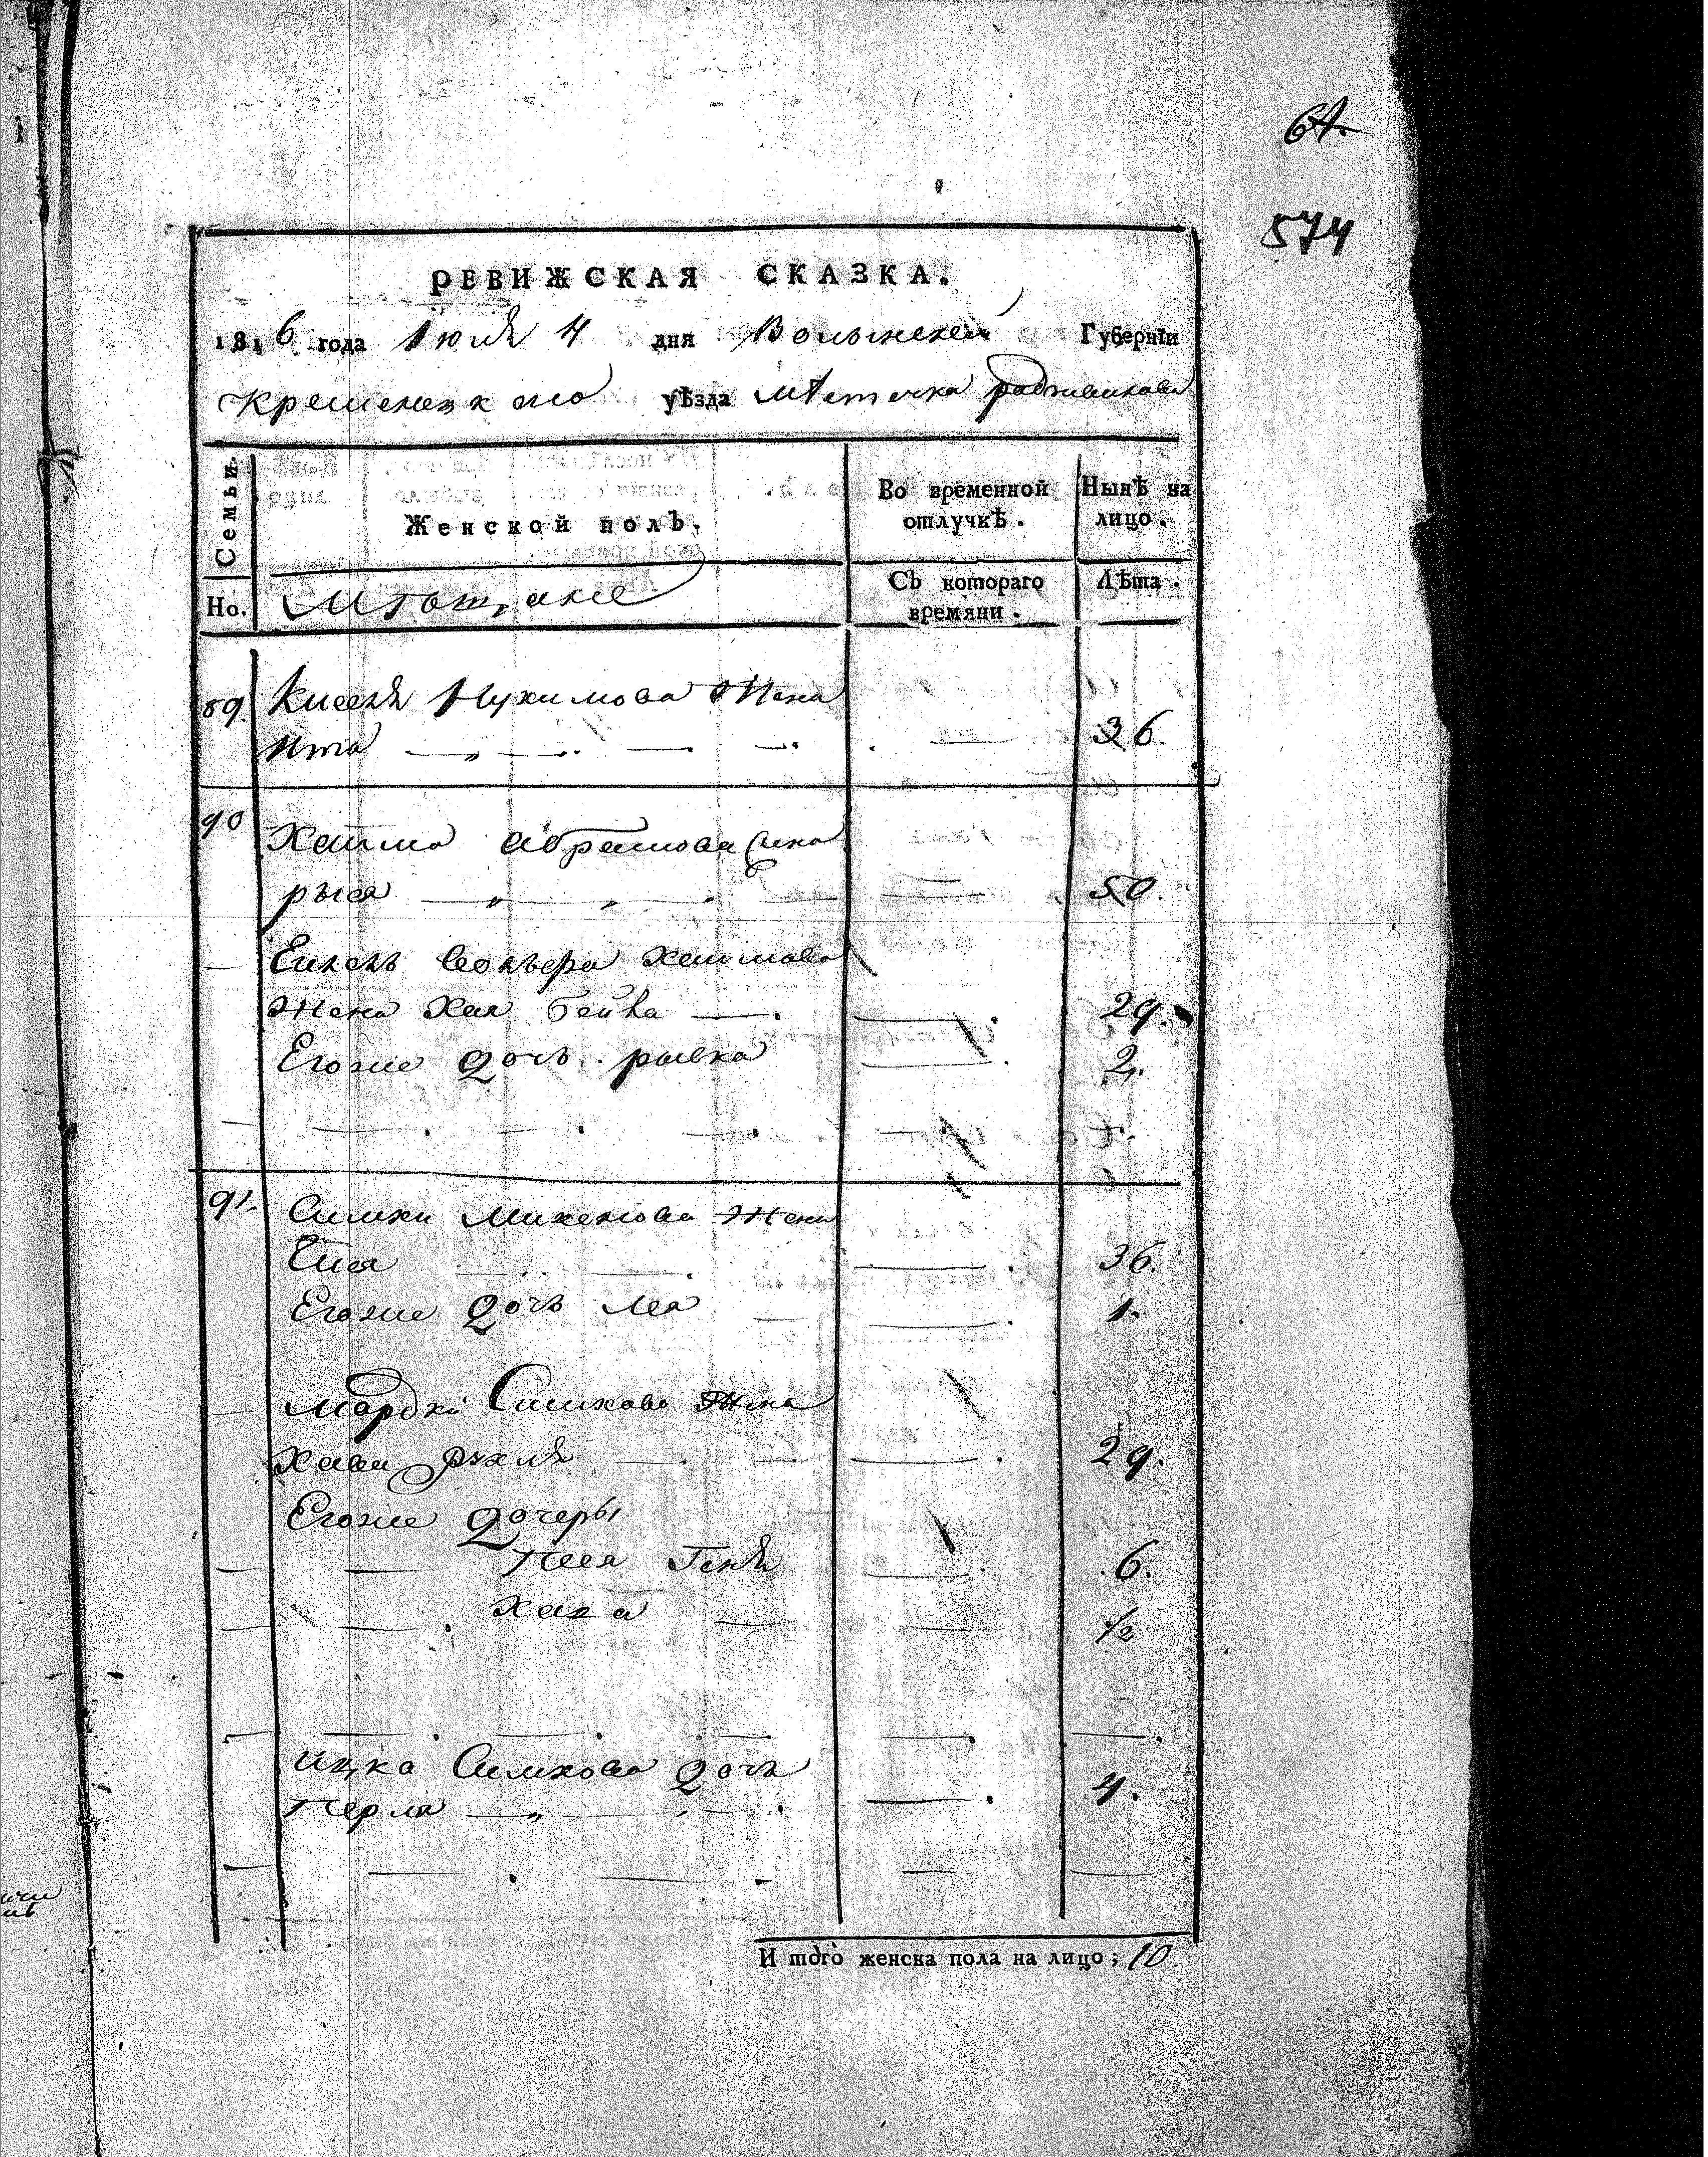 574
РЕВИЖСКАЯ СКАЗКА.
1816 года Июля 4 дня Волынской Губернїи
Кременецкаго уѣзда мѣстечка радзивилова
Семьи.
Женской полъ.
Во временной отлучкѣ.
Нынѣ на лицо.
Но.
Мѣщане
Съ котораго времяни.
Лѣта.
89. Киселя Нухимова Жена
Ита 36.
90 Хаима Абрамова Жена
рыся 50.
Хаимова
Жена Хая Бейла 29.
Егоже дочь рывка 2.
91. Симхи Михелюва Жена
Еися 36.
Егоже дочь леа 1.
Мордки Симхова Жена
Хава рухля 29.
Егоже дочеры
Песя Геня 6.
Хана 1/2
Ицка Симхова дочь
Перля 4.
И того женска пола на лицо; 10.